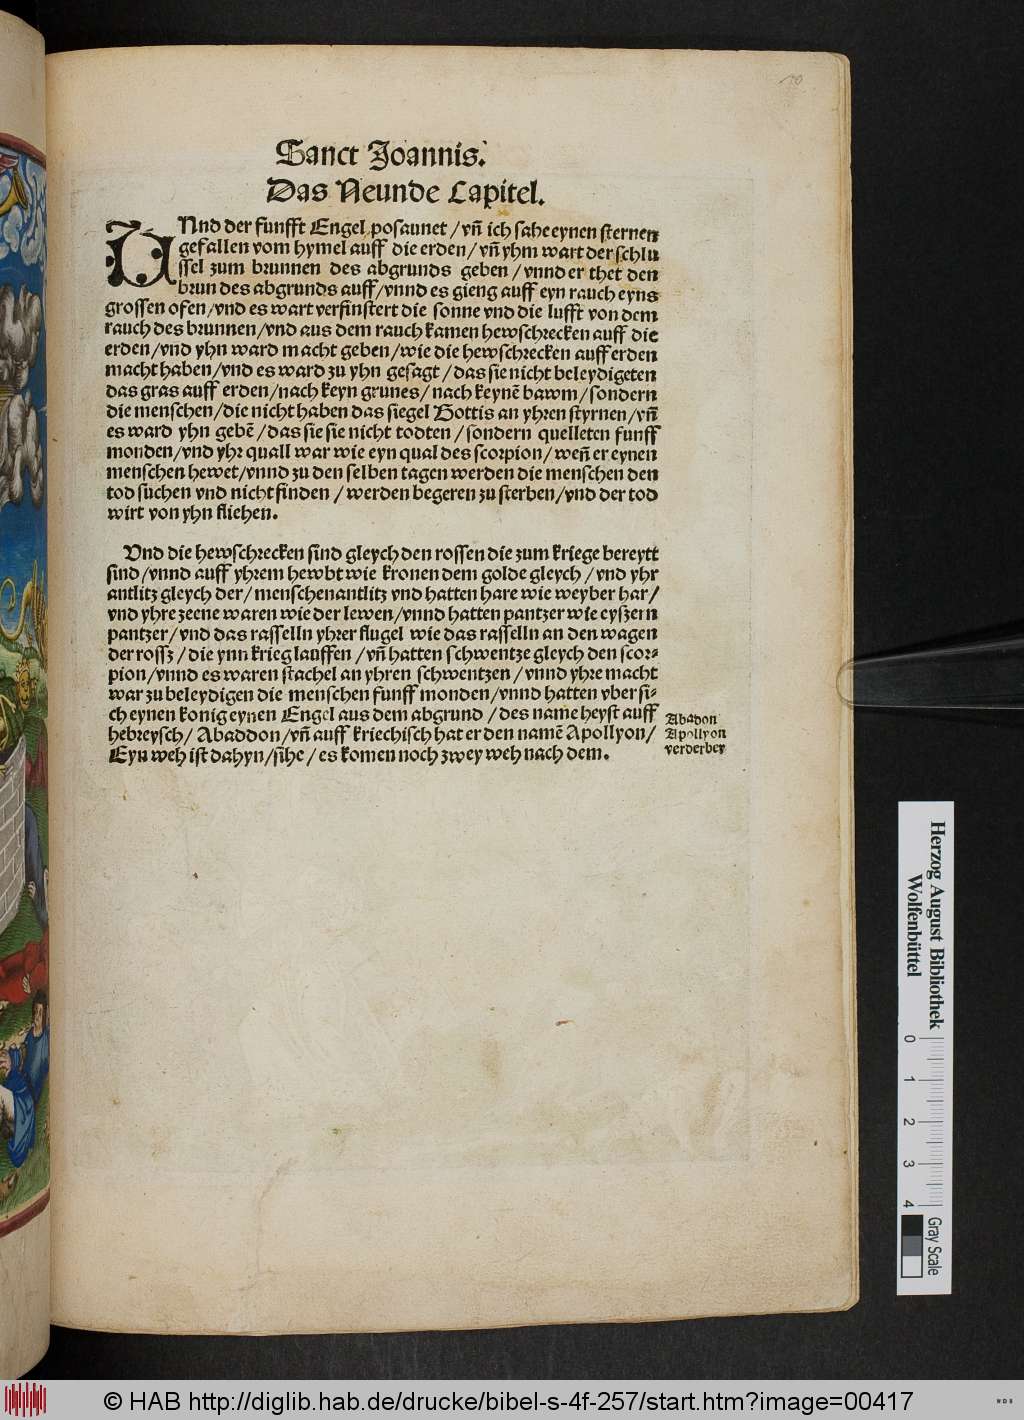 Sanct Joannis.
Das Neunde Capitel.
VNnd der funfft Engel posaunet / vñ ich sahe eynen sternen
gefallen vom hymel auff die erden / vñ yhm wart der schlu
ssel zum brunnen des abgrunds geben / vnnd er thet den
brun des abgrunds auff / vnnd es gieng auff eyn rauch eyns
grossen ofen / vnd es wart verfinstert die sonne vnd die lufft von dem
rauch des brunnen / vnd aus dem rauch kamen hewschrecken auff die
erden / vnd yhn ward macht geben / wie die hewschrecken auff erden
macht haben / vnd es ward zu yhn gesagt / das sie nicht beleydigeten
das gras auff erden / nach keyn grunes / nach keynē bawm / sondern
die menschen / die nicht haben das siegel Gottis an yhren styrnen / vñ
es ward yhn gebē / das sie sie nicht todten / sondern quelleten funff
monden / vnd yhr quall war wie eyn qual des scorpion / weñ er eynen
menschen hewet / vnnd zu den selben tagen werden die menschen den
tod suchen vnd nicht finden / werden begeren zu sterben / vnd der tod
wirt von yhn fliehen.
Vnd die hewschrecken sind gleych den rossen die zum kriege bereytt
sind / vnnd auff yhrem hewbt wie kronen dem golde gleych / vnd yhr
antlitz gleych der / menschen antlitz vnd hatten hare wie weyber har /
vnd yhre zeene waren wie der lewen / vnnd hatten pantzer wie eyszern
pantzer / vnd das rasselln yhrer flugel wie das rasselln an den wagen
der rossz / die ynn krieg lauffen / vñ hatten schwentze gleych den scor-
pion / vnnd es waren stachel an yhren schwentzen / vnnd yhre macht
war zu beleydigen die menschen funff monden / vnnd hatten vber si-
ch eynen konig eynen Engel aus dem abgrund / des name heyst auff
hebreysch / Abaddon / vñ auff kriechisch hat er den namē Apollyon /
Eyn weh ist dahyn / sihe / es komen noch zwey weh nach dem.
Abadon
Apollyon
verderber
Herzog August Bibliothek
Wolfenbüttel
0 1 2 3 4
Gray Scale
© HAB http://diglib.hab.de/drucke/bibel-s-4f-257/start.htm?image=00417